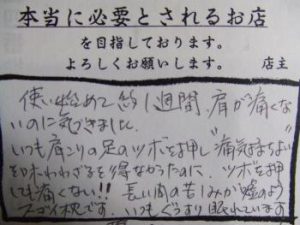 本当に必要とされるお店
を目指しております。
よろしくお願いします。 店主
使い始めて約1週間、肩が痛くな
いのに気づきました。
いつも肩こりの足のツボを押し"痛気持ちよい"
を味わわざるを得なかったのに、ツボを押
しても痛くない!! 長い間の苦しみが嘘のよう
スゴイ枕です。いつもぐっすり眠れています